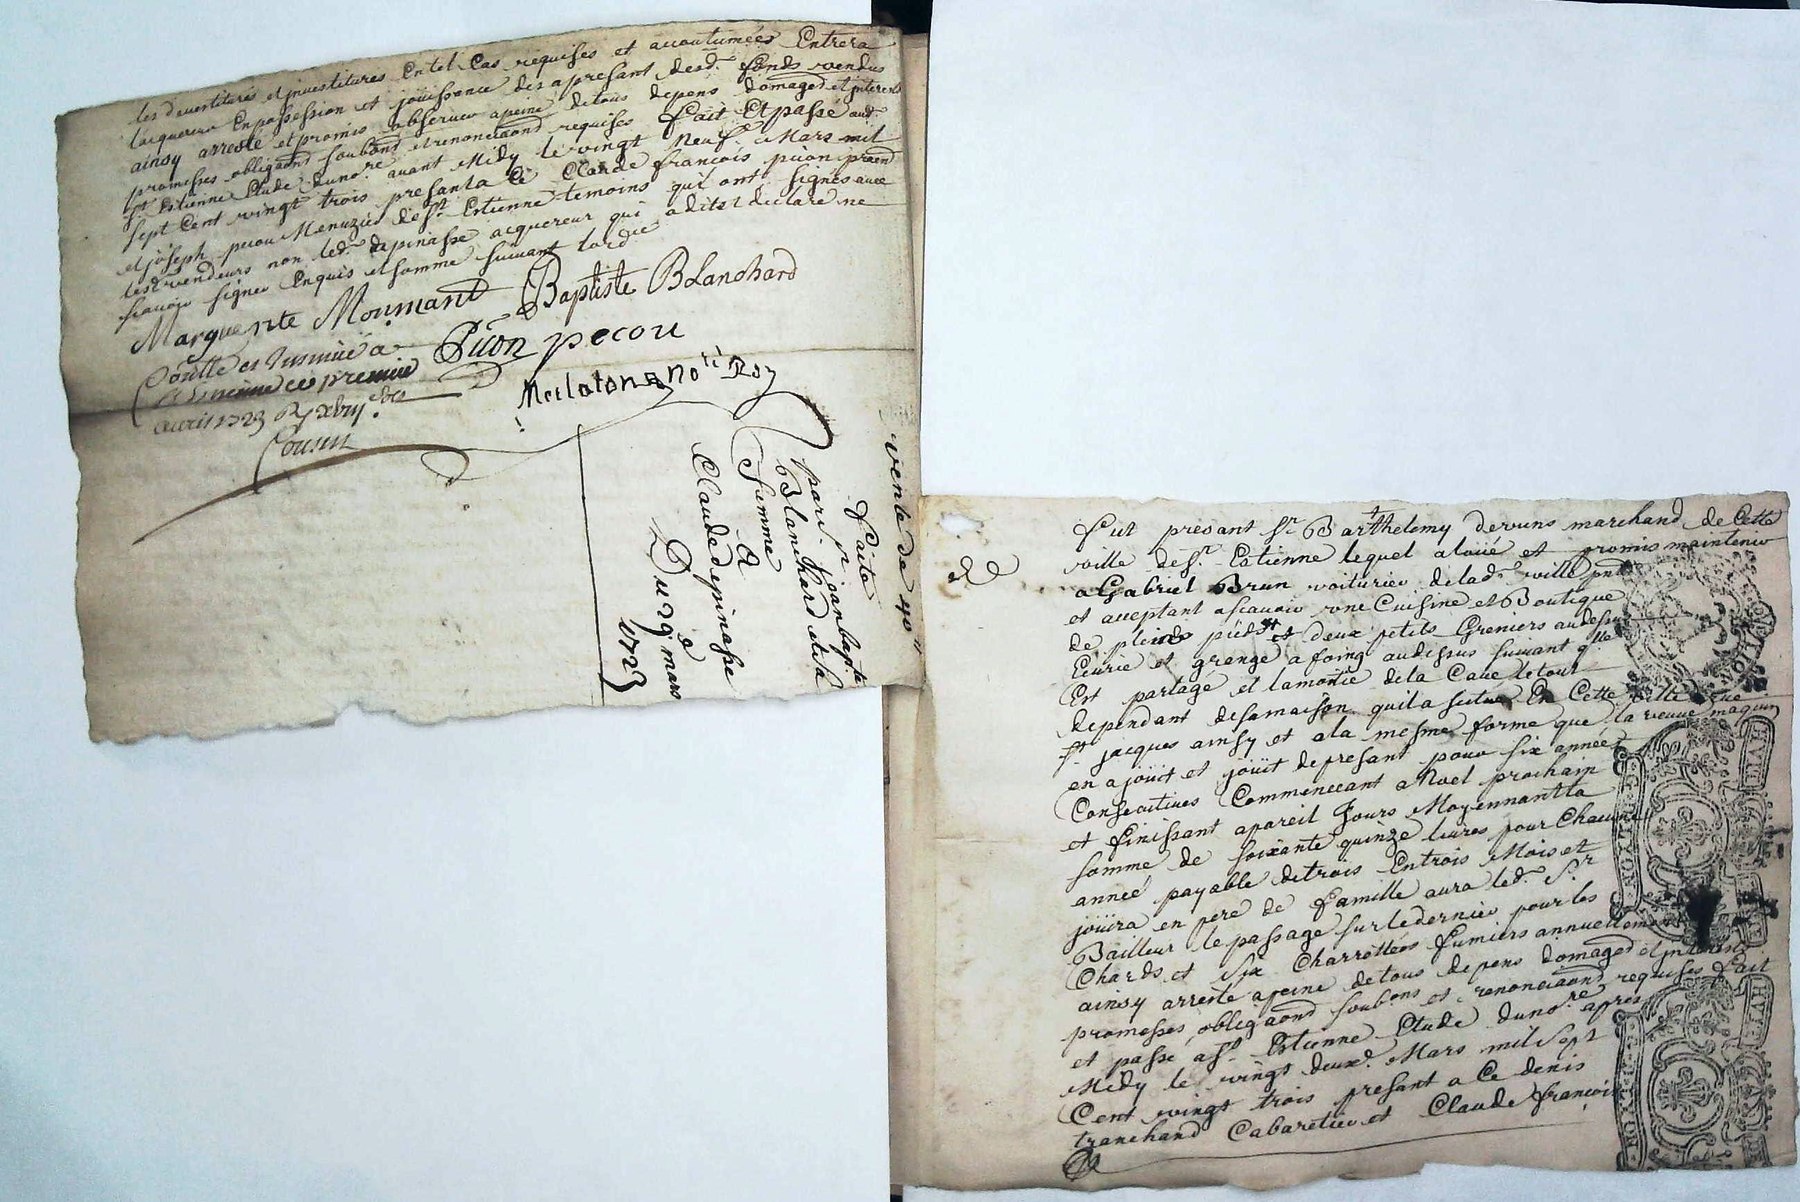 les devestitures et investitures En tel Cas requises et accoutumées Entrera
lacquereur En possession et joüissance des apresant desd. fonds vendus
ainsy arresté et promis observer a peine de tous depens domages et interests
promesses obligaons soubons et renonciaons requises fait Et passé aud.
St Estienne Etude du nore avant Midy le vingt Neuf. Mars mil
sept Cent vingt trois presant a Ce Claude françois picon praticn
et joseph pecou Menuzier de St. Estienne temoins qui ont signés avec
lesd vendeurs non led. depinasse acquereur qui a dit et declaré ne
scavoir signer Enquis et somme suivant lord.ce
Marguerite Moumant Baptiste Blanchard
Picon pecou
Contte et Insinüé a
St Estienne ce premier
avril 1723
Cousin
Merlaton No.re Roy
vente de 40 ll
faite
par jean bapte
Blanchard et sa
femme
A
Claude depinasse
Du 29e mars
1723
fut presant Sr Barthelemy devuns marchand de Cette
ville de St. Estienne lequel a loüé et promis maintenir
a Gabriel Brun voiturier de lad. ville pnt
et acceptant ascavoir une Cuisine et Boutique
de pleids pieds et deux petits Greniers audessus
Ecurie et grange a foing audessus suivant q.lle
Est partagé et la moitié de la Cave le tout
dependant de sa maison quil a scituée En Cette ville rue
St jacques ainsy et a la mesme forme que la veuve maguin
en a joüit et joüit de presant pour six années
Consecutives Commencant a Noel prochain
et finissant a pareil Jours Moyennant la
somme de soixante quinze livres pour Chacune
année payable de trois En trois Mois et
joüira en pere de famille aura led. Sr
Bailleur le passage sur le dernier pour les
Chards et six Charrettées fumiers annuellement
ainsy arresté a peine de tous depens domages et interests
promesses obligaons soubons et renonciaons requises fait
et passé a St. Estienne Etude du nore apres
Midy le vingt deuxe. Mars mil sept
Cent vingt trois presant a Ce denis
tranchand Cabaretier et Claude françois